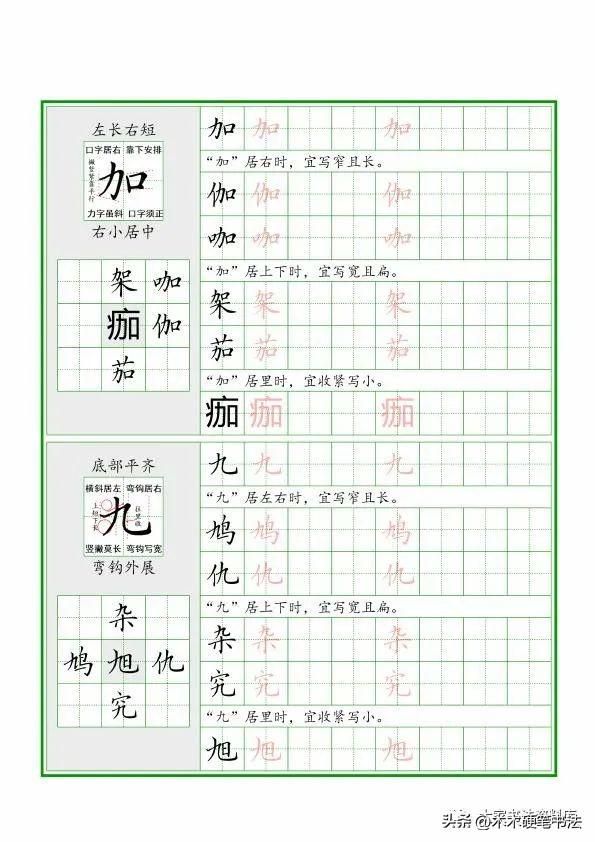 左长右短
口字居右 靠下安排
撇竖紧靠平行
加
力字虽斜 口字须正
右小居中
架 咖
痂 伽
茄
加 加 加
“加”居右时，宜写窄且长。
伽 伽 伽
咖 咖 咖
“加”居上下时，宜写宽且扁。
架 架 架
茄 茄 茄
“加”居里时，宜收紧写小。
痂 痂 痂
底部平齐
横斜居左 弯钩居右
上短下长
九
往里收
竖撇莫长 弯钩写宽
弯钩外展
杂
鸠 旭 仇
究
九 九 九
“九”居左右时，宜写窄且长。
鸠 鸠 鸠
仇 仇 仇
“九”居上下时，宜写宽且扁。
杂 杂 杂
究 究 究
“九”居里时，宜收紧写小。
旭 旭 旭
头条 @木木硬笔书法